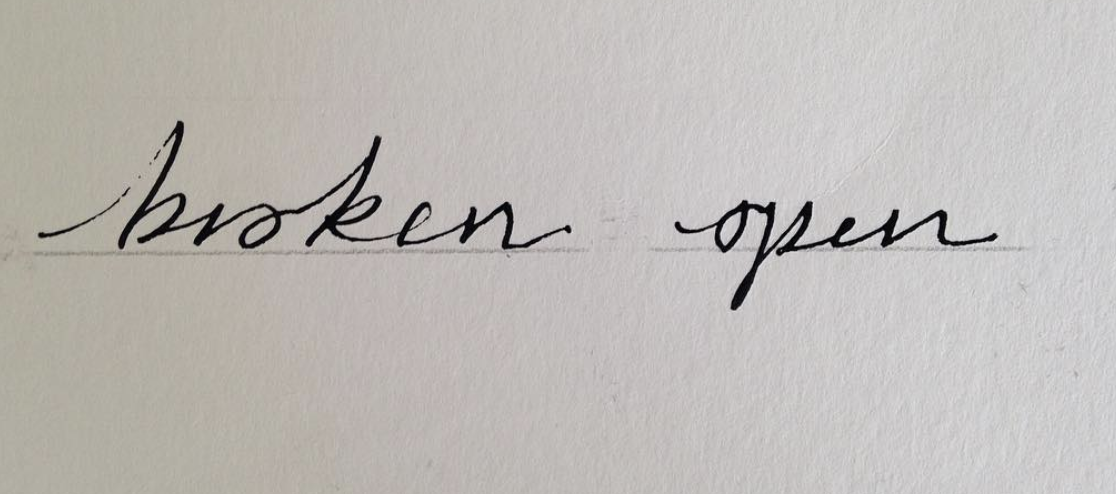 broken open